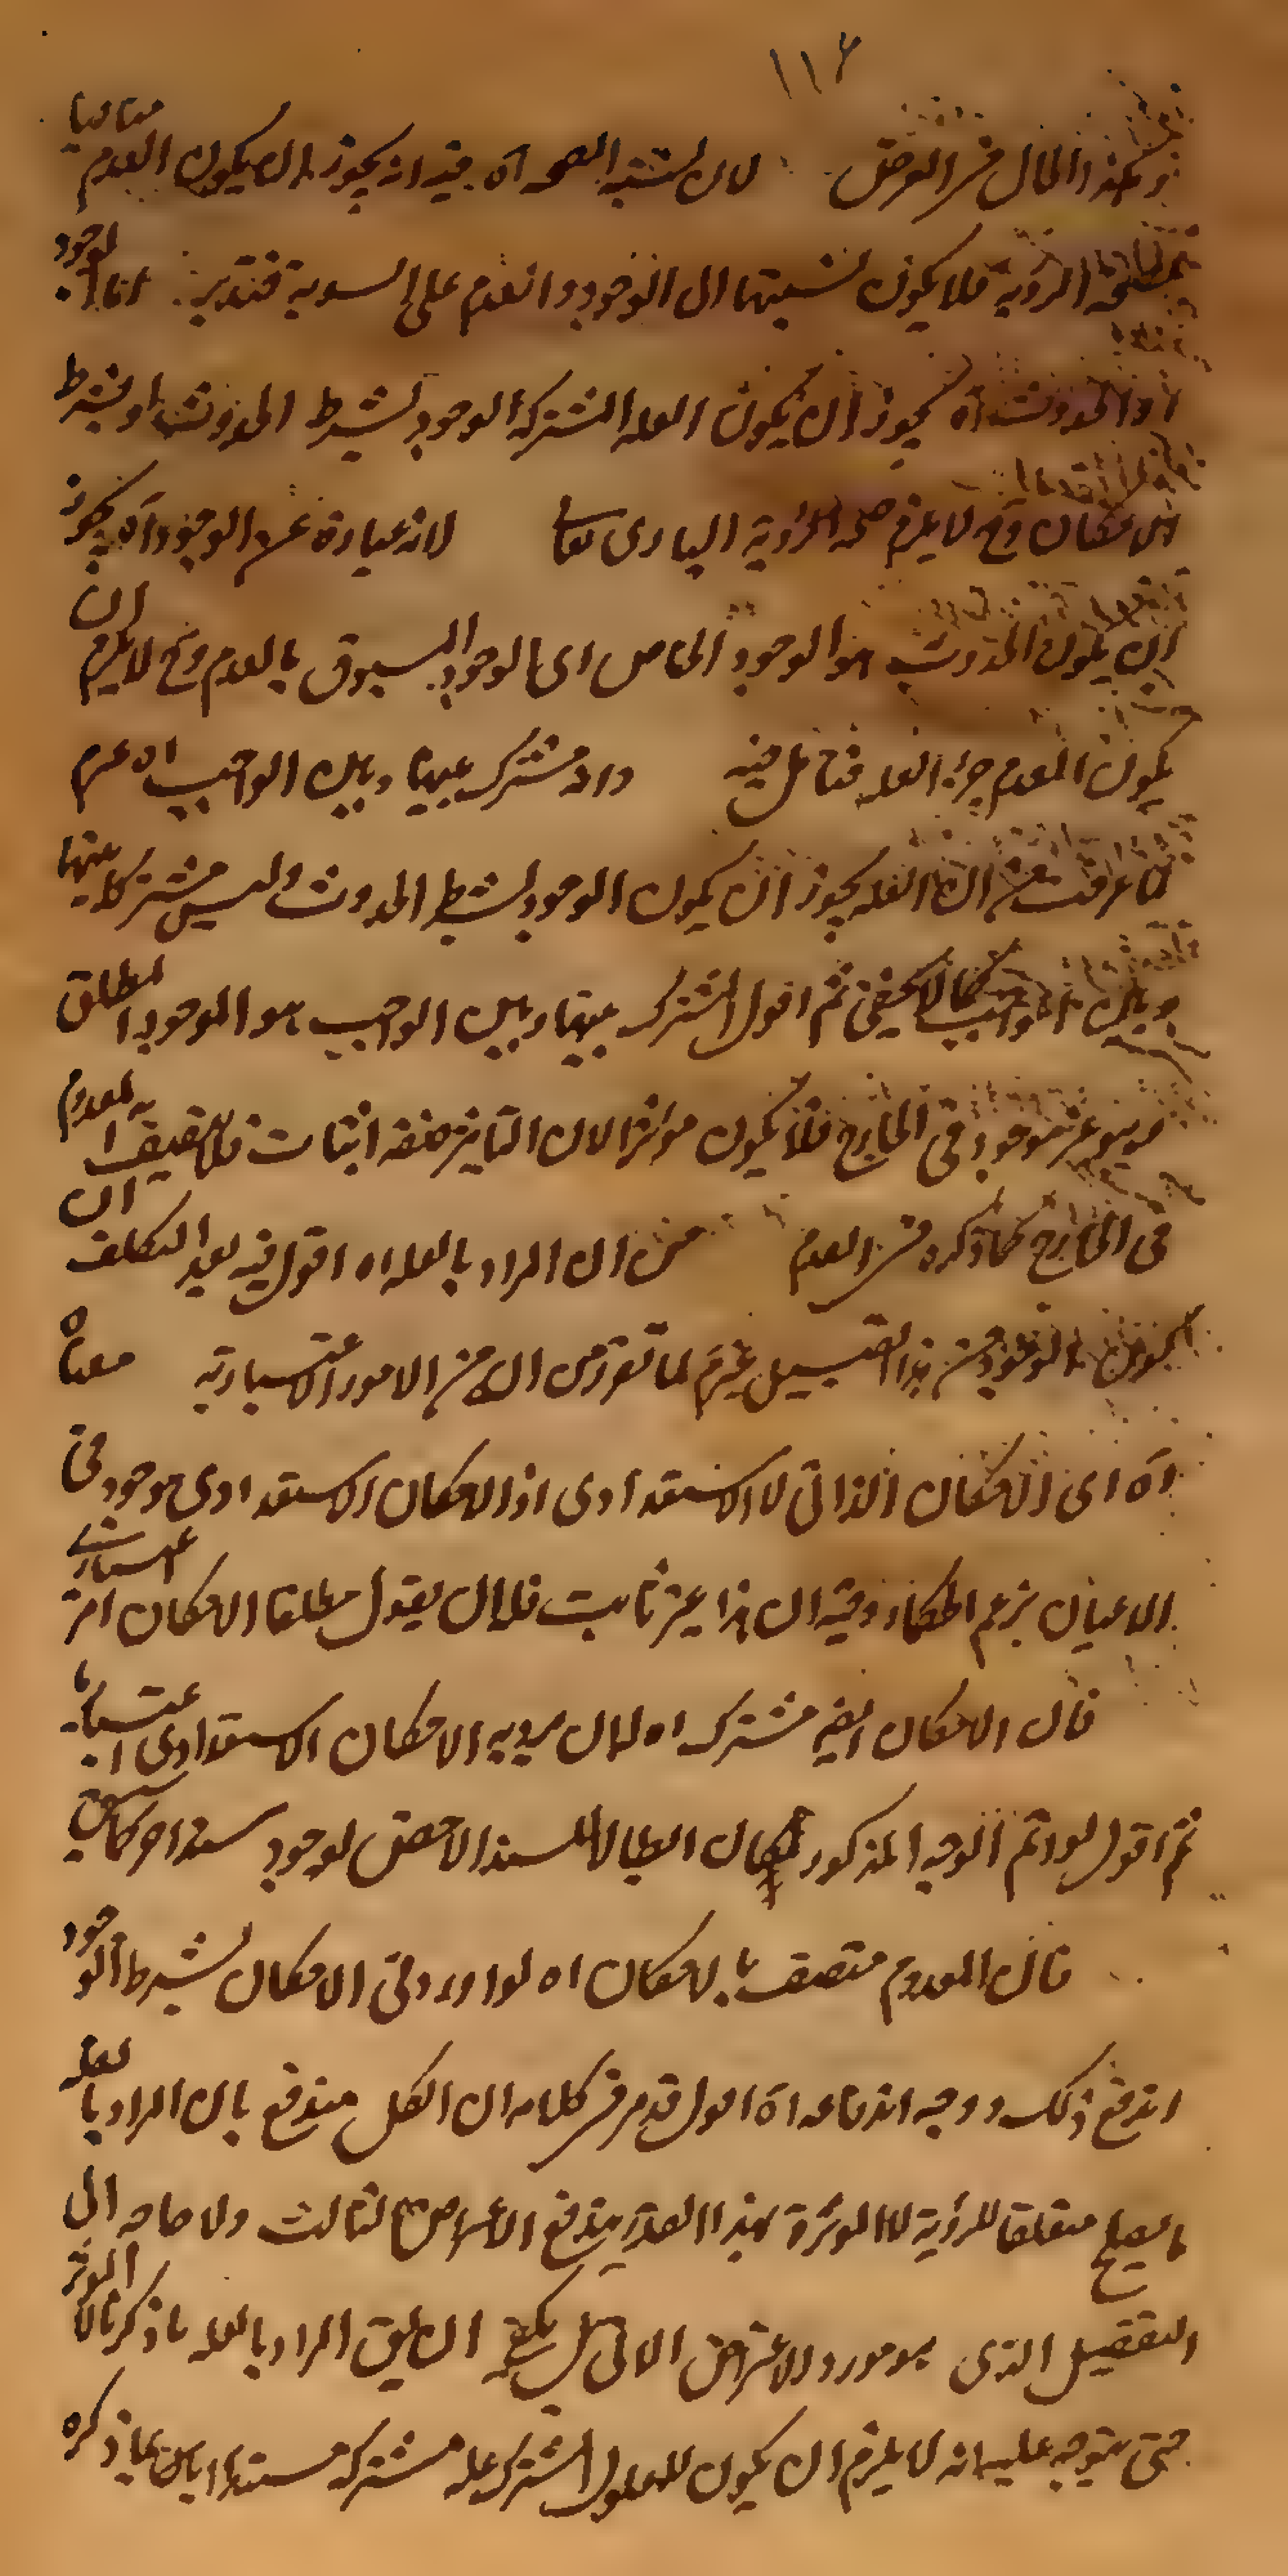 ١١٦
وهكذا الحال في العرض لان نسبته الصحة آه فيه انه يجوز ان يكون العدم منافيا
لصحة الرؤية فلا يكون نسبتها الى الوجود والعدم على السوية فتدبر اما الوجود
او الحدوث آه يجوز ان يكون العلة المشتركة الوجود بشرط الحدوث او بشرط
الامكان وح لا يلزم صحة الرؤية البارى تعالى لانه عبارة عن الوجود آه يجوز
ان يكون الحدوث هو الوجود الخاص اى الوجود المسبوق بالعدم وح لا يلزم ان
يكون العدم جزء العلة فتامل فيه وانه مشترك بينهما وبين الواجب اه غير م
لما عرفت من ان العلة يجوز ان يكون الوجود بشرط الحدوث وليس مشتركا بينهما
وبين الواجب كما لا يخفى ثم اقول المشترك بينهما وبين الواجب هو الوجود المطلق
وهو غير موجود في الخارج فلا يكون مؤثرا لان التاثير صفة اثبات فلا يتصف به المعدوم
في الخارج كما ذكره في العدم من ان المراد بالعلة اه اقول فيه بعد التكلف ان
كون الوجود من هذا القبيل غير م لما تقرر من انه من الامور الاعتبارية معناه
آه اى الامكان الذاتى لا الاستعدادى اذ الامكان الاستعدادى موجود في
الاعيان بزعم الحكماء وفيه ان هذا غير ثابت فله ان يقول مطلقا الامكان امر اعتبارى
قال الامكان ايضا مشترك اه له ان يريد به الامكان الاستعدادى اعتباريا
ثم اقول لو اتم الوجه المذكور لكان ابطالا للسند الاخص لوجود سند اخر كما سبق
قال المعدوم متصف بالامكان اه لو اورد ولى الامكان بشرط الوجود
اندفع ذلك ووجه اندفاعه آه اقول قد مر في كلامه ان الكل مندفع بان المراد بالعلة
ما يصلح متعلقا للرؤية لا المؤثرة بهذا القدر يندفع الاعتراض الثالث ولا حاجة الى
التفصيل الذى هو مورد للاعتراض الاتى بل يكفيه ان يق المراد بالعلة ما ذكرنا لا المؤثر
حتى يتوجه عليه انه لا يلزم ان يكون للمعلول المشترك علة مشتركة مستندا بما ذكره